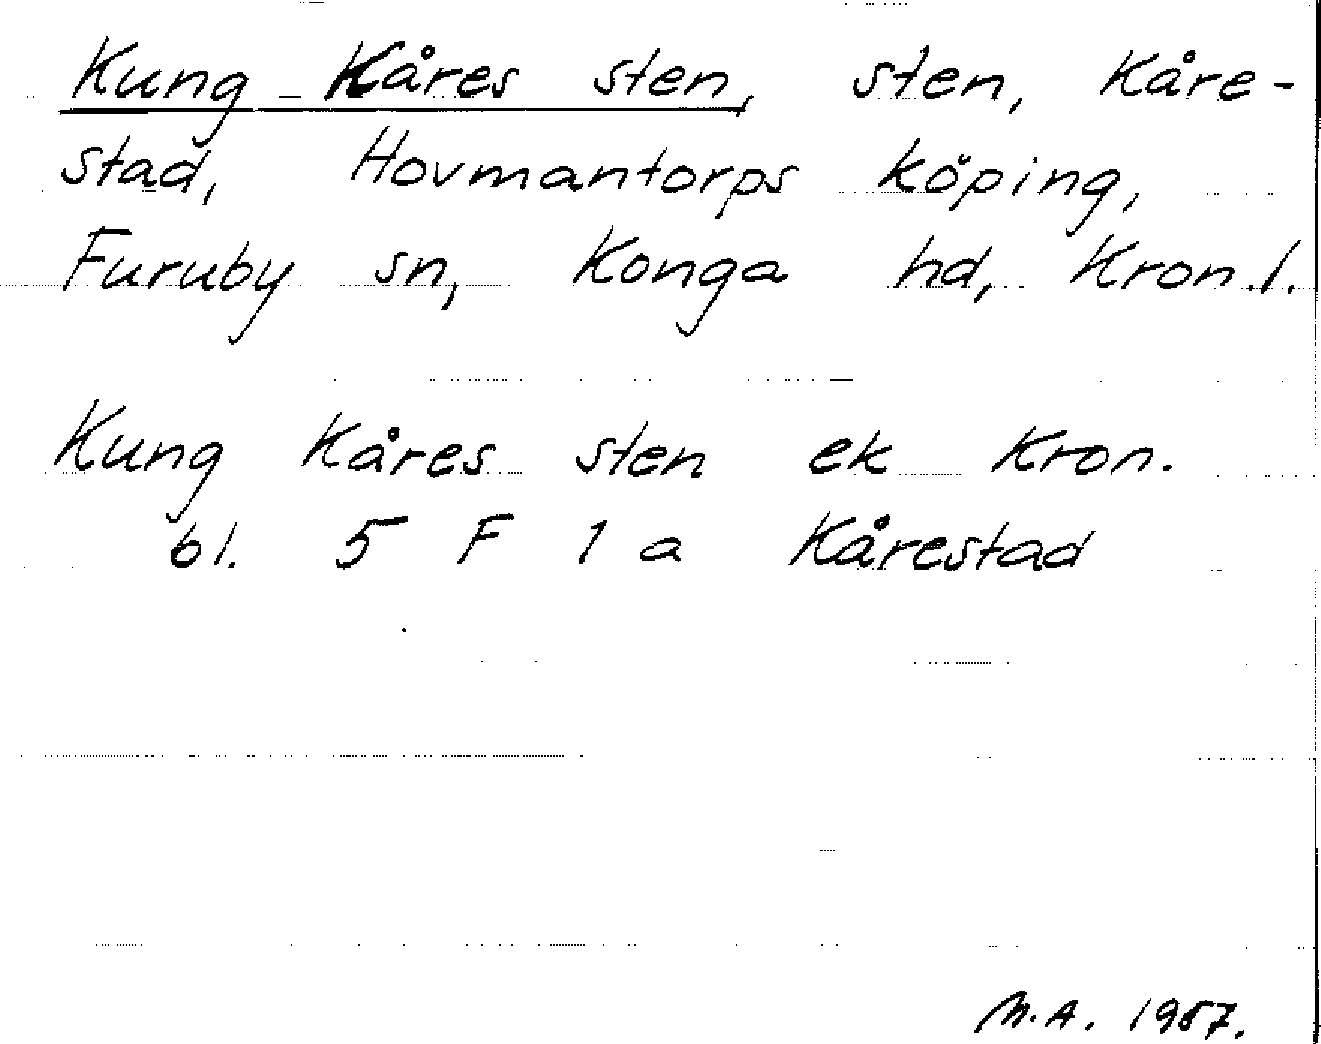 Kung Kåres sten, sten, Kåre-
stad, Hovmantorps köping,
Furuby sn, Konga hd, Kron.l.
Kung Kåres sten ek Kron.
bl. 5 F 1 a Kårestad
M.A. 1967.